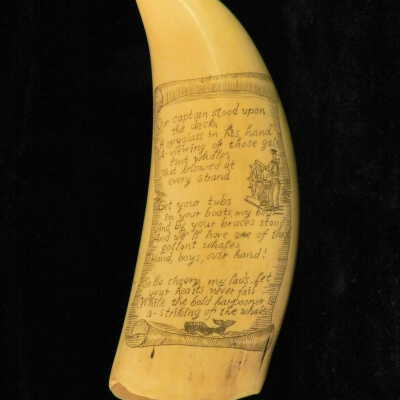 captain stood upon
the deck,
spyglass in his hand
A-viewing of those gal
lant whales
that blowed at
every strand
Get your tubs
in your boats, my boys
And by your braces stand
And we'll have one of those
gallant whales
Hand, boys, over hand!
cheery, my lads, let
your hearts never fail
While the bold harpooner is
a-striking of the whale